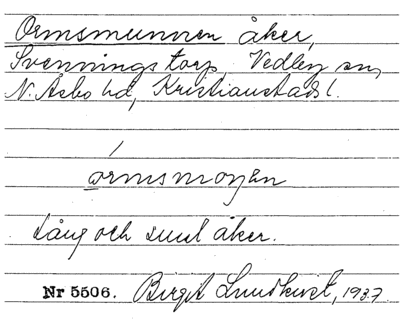 Ormsmunnen åker,
Svenningstorp, Vedby sn,
N. Åsbo hd, Kristianstads l.
ormsmoŋen
Lång och smal åker.
Nr 5506. Birgit Lundkvist, 1937